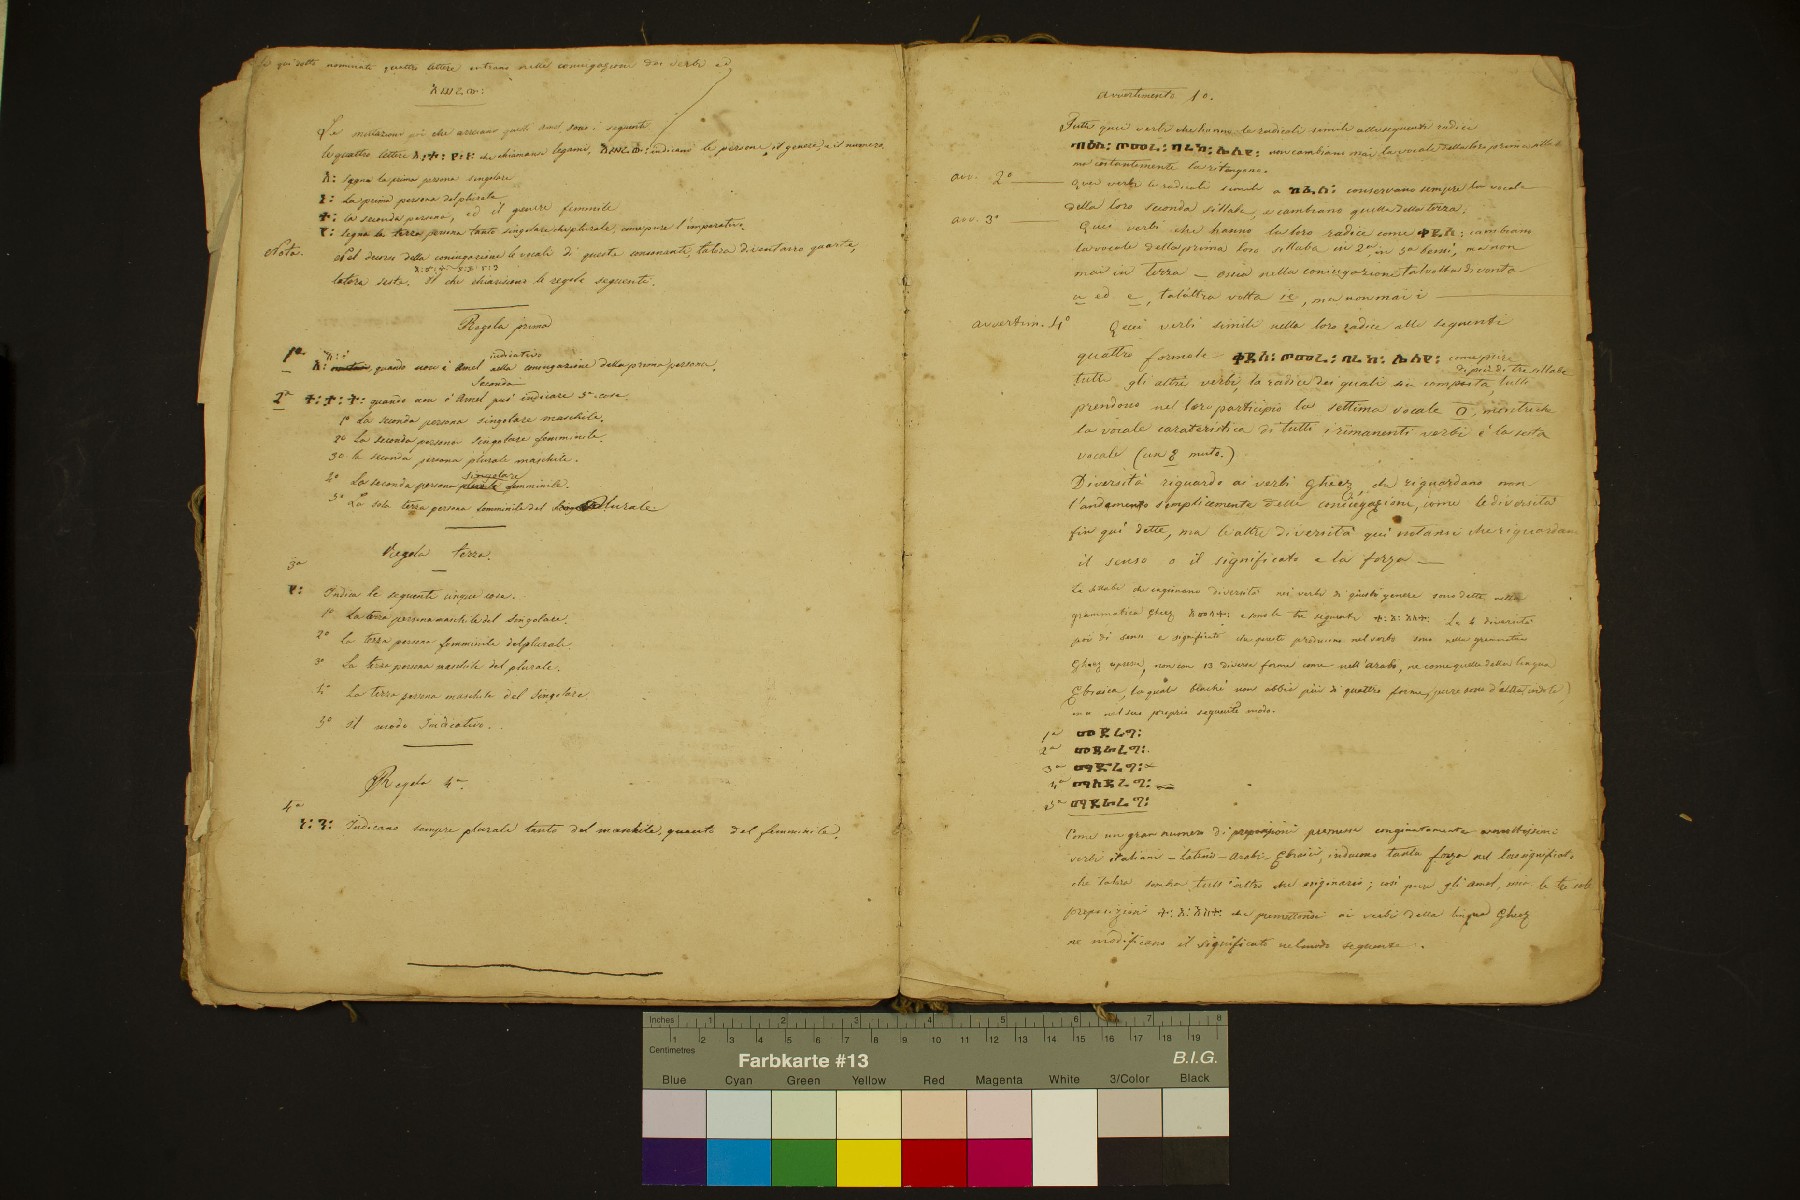 qui sotto nominate quattro lettere entrano nella coniugazione dei verbi ed
አሠረወ፡
Le mutazioni poi che arrecano quelli amel sono i seguenti
le quattro lettere አ፡ተ፡የ፡ነ፡ che chiamansi legami, አሠረወ፡ indicano le persone, il genere, e il numero.
አ፡ segna la prima persona singolare
ነ፡ La prima persona del plurale
ተ፡ la seconda persona, ed il genere feminile
የ፡ segna la terza persona tanto singolare che plurale, come pure l'imperativo.
Nota. Nel decorso della coniugazione le vocali di queste consonanti, talora diventarro quarte,
talora seste. Il che chiariscono le regole seguenti.
Regola prima
indicativo
1a. አ፡ quando non è Amel nella coniugazione della prima persona.
Seconda
2a ተ፡ተ፡ት፡ quando non è Amel può indicare 5 cose.
1o La seconda persona singolare maschile.
2o La seconda persona singolare femminile.
3o la seconda persona plurale maschile.
singolare
4o La seconda persona plurale femminile.
5o La sola terza persona femminile del Plurale
Regola terza.
3a
የ፡ Indica le seguenti cinque cose.
1o La terza persona maschile del Singolare.
2o la terza persona femminile del plurale.
3o La terza persona maschile del plurale.
4o La terza persona maschile del Singolare
5o Il modo Indicativo.
Regola 4a.
4a
ነ፡ን፡ Indicano sempre plurale tanto del maschile, quanto del femminile.
avvertimento 1o.
Tutti quei verbi che hanno le radicali simili alle seguenti radici
ባዕለ፡ ጦመረ፡ ባረከ፡ ሌለየ፡ non cambiano mai la vocale della loro prima sillaba
ma costantemente la ritengono.
avv. 2o Quei verbi le radicali simili a conservano sempre la vocale
della loro seconda sillaba, e cambiano quella della terza.
avv. 3o Quei verbi che hanno la loro radice come ቀደሰ፡ cambiano
la vocale della prima loro sillaba in 2a, in 5a bensì, ma non
mai in terza – ossia nella coniugazione talvolta diventa
u ed e, talaltra volta ie, ma non mai i
avvertim. 4o Quei verbi simili nella loro radice alle seguenti
quattro formole ቀደሰ፡ ጦመረ፡ ባረከ፡ ሌለየ፡ come pure
di più di tre sillabe
tutti gli altri verbi, la radice dei quali sia composta, tutti
prendono nel loro participio la settima vocale O, mentre che
la vocale carateristica di tutti i rimanenti verbi è la sesta
vocale (un e muto.)
Diversità riguardo ai verbi Gheez, che riguardano non
l'andamento semplicemente della coniugazioni, come le diversità
fin qui dette, ma le altre diversità qui notansi che riguardano
il senso o il significato e la forza –
Le sillabe che cagionano diversità nei verbi di questo genere sono dette nella
grammatica Gheez አመላተ፡ e sono le tre seguenti ተ፡ አ፡ አስተ፡ La diversità
poi di senso e significato che queste producono nel verbo sono nella grammatica
Gheez espressa, non con 13 diverse forme come nell'arabo, ne come quelle della lingua
Ebraica, la quale blachè non abbia più di quattro forme, pure sono d'altra indole)
ma nel suo proprio seguente modo.
1a መደረግ፡
2a መደራረግ፡
3a ማድረግ፡
4a ማስደረግ፡
5a ማደራረግ፡
Come un gran numero di preposizioni premesse congiuntamente a moltissimi
verbi italiani – latini – Arabi – Ebraici, inducono tanta forza nel loro significato,
che talora sembra tutt'altro che originario; così pure gli amel, ossia le tre sole
preposizioni ተ፡ አ፡ አስተ፡ che premettonsi ai verbi della lingua Gheez
ne modificano il significato nel modo seguente.
Inches 1 2 3 4 5 6 7 8
Centimetres 1 2 3 4 5 6 7 8 9 10 11 12 13 14 15 16 17 18 19
Farbkarte #13 B.I.G.
Blue Cyan Green Yellow Red Magenta White 3/Color Black